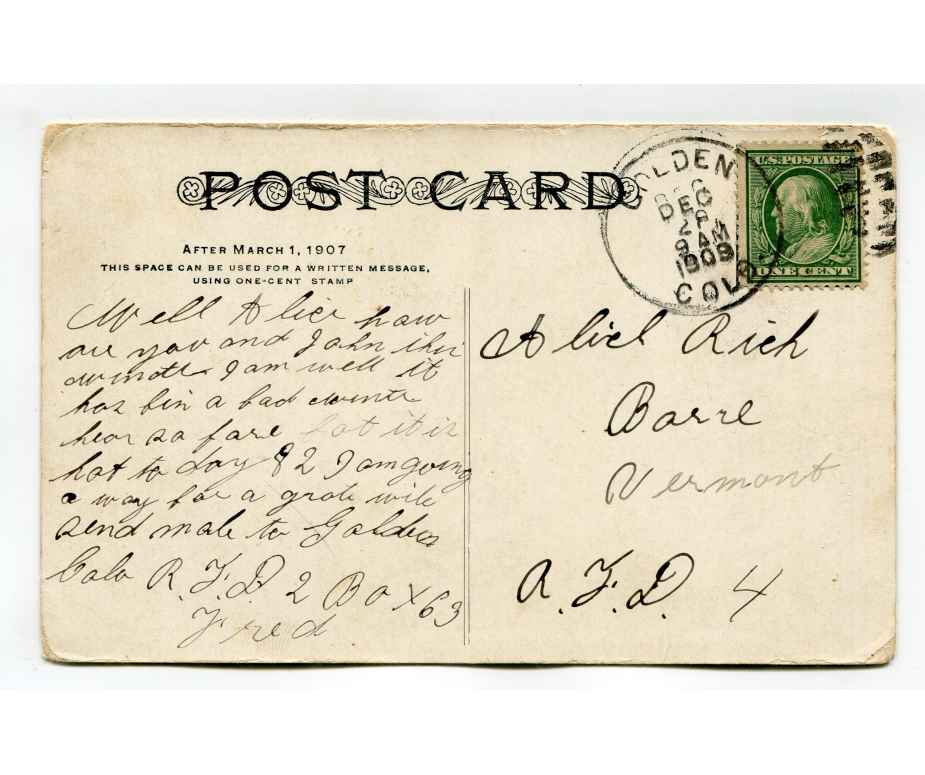 POST CARD
AFTER MARCH 1, 1907
THIS SPACE CAN BE USED FOR A WRITTEN MESSAGE,
USING ONE-CENT STAMP
Well Alice how
are you and John this
I am well it
has bin a bad
hear so fare bot it is
hot to day 82 I am going
a way for a
send male to Golden
Colo R.F.D. 2 Box 63
Fred
GOLDEN
DEC
9 AM
1909
COLO.
U.S. POSTAGE
ONE CENT
Rich
Barre
Vermont
R.F.D. 4